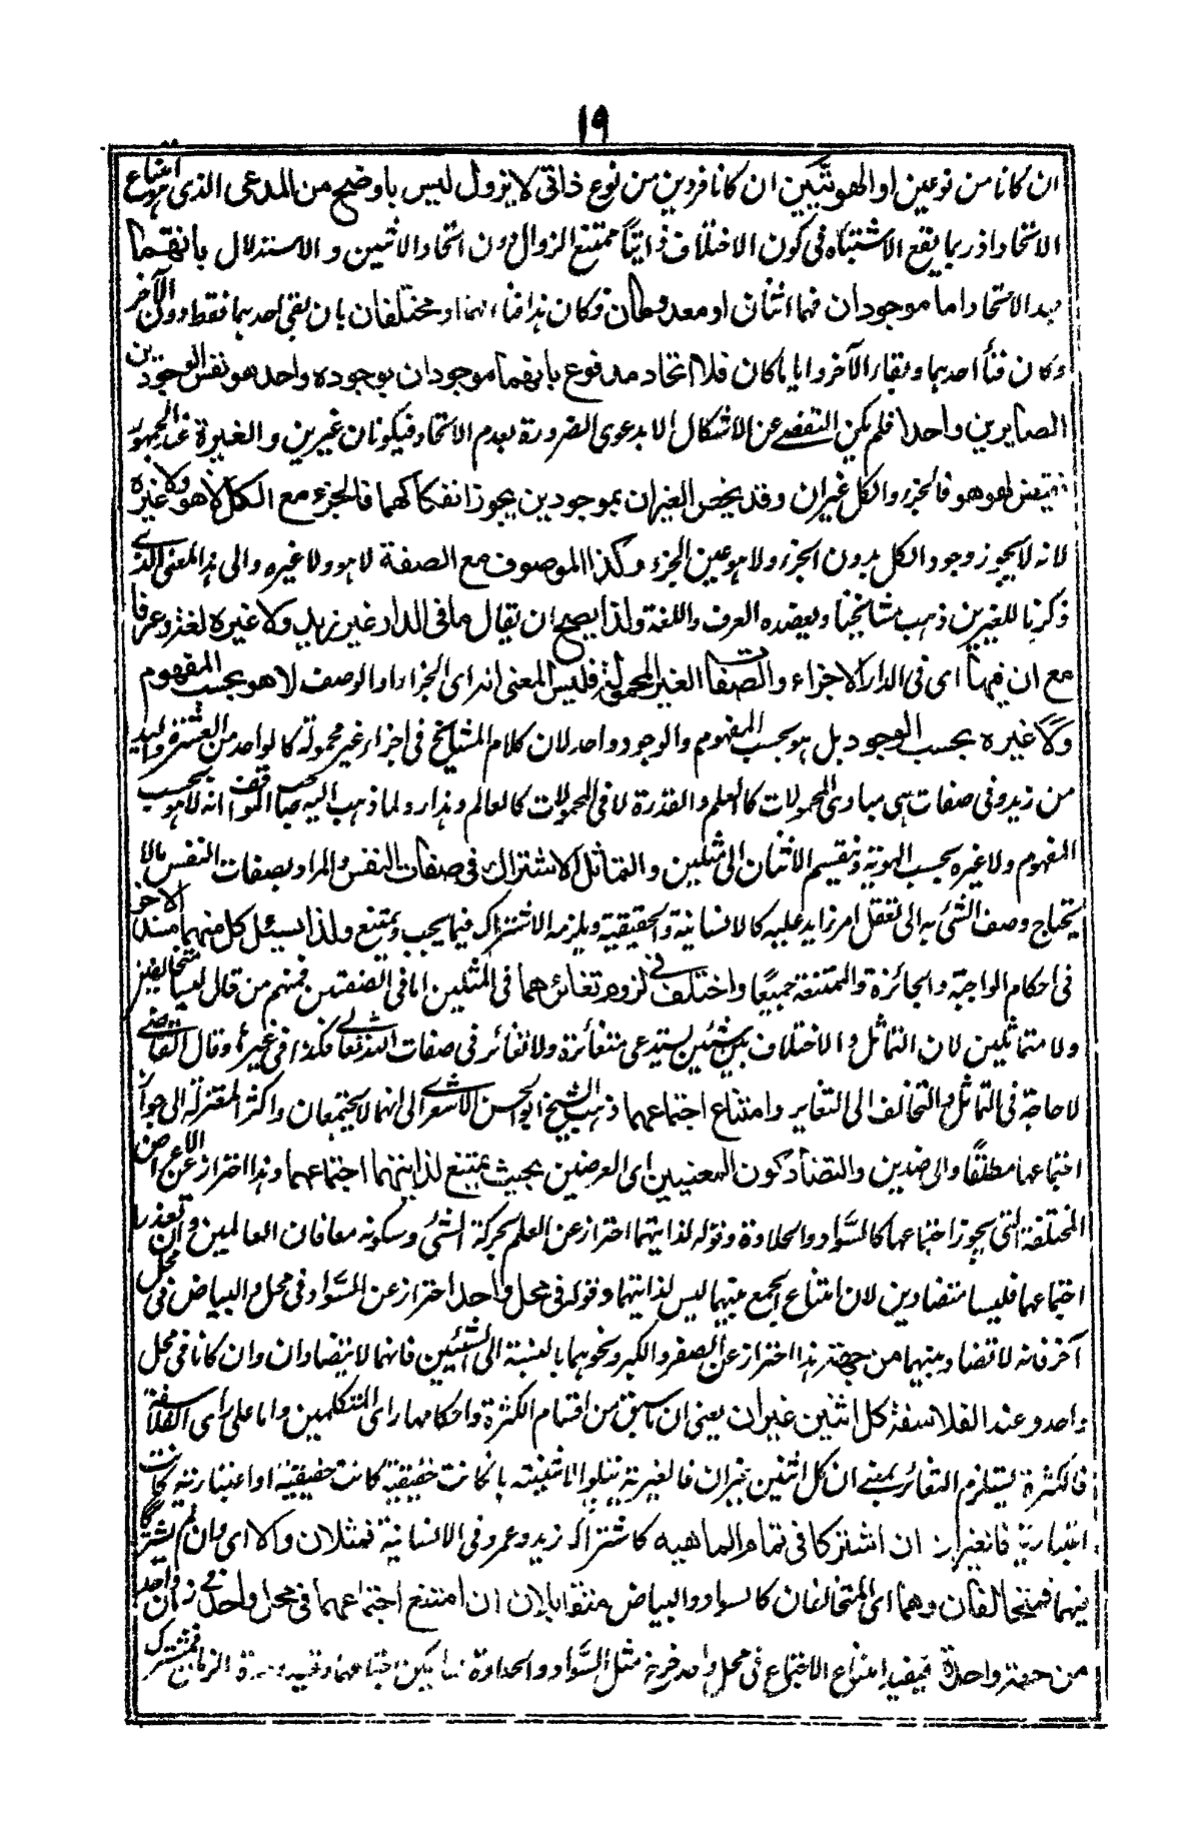 ١٩
ان كانا من نوعين او الهويتين ان كانا فردين من نوع ذاتى لا يزول ليس باوضح من المدعى الذى هو امتناع
الاتحاد اذ ربما يقع الاشتباه فى كون الاختلاف ذاتيا ممتنع الزوال دون اتحاد الاثنين و الاستدلال بانهما
بعد الاتحاد اما موجودان فهما اثنان او معدومان فكان هذا فناء لهما او مختلفان بان بقى احدهما فقط دون الآخر
وكان فناء احدهما وبقاء الآخر وايا ما كان فلا اتحاد مدفوع بانهما موجودان بوجود واحد هو نفس الوجودين
الصايرين واحدا فلم يكن التفصى عن الاشكال الا بدعوى الضرورة بعدم الاتحاد فيكونان غيرين و الغيرية عند الجمهور
نقيض هو هو فالجزء والكل غيران وقد يخص الغيران بموجودين يجوز انفكاكهما فالجزء مع الكل لا هو ولا غيره
لانه لا يجوز وجود الكل بدون الجزء ولا هو عين الجزء وكذا الموصوف مع الصفة لا هو ولا غيره والى هذا المعنى الذى
ذكرنا للغيرين ذهب مشائخنا ويعضده العرف واللغة ولذا يصح ان يقال ما فى الدار غير زيد ولا غيره لغة وعرفا
مع ان فيها اى فى الدار الاجزاء والصفات الغير المحمولة فليس المعنى انه اى الجزء او الوصف لا هو بحسب المفهوم
ولا غيره بحسب الوجود بل هو بحسب المفهوم والوجود واحد لان كلام المشايخ فى اجزاء غير محمولة كالواحد من العشرة واليد
من زيد وفى صفات هى مبادى المحمولات كالعلم والقدرة لا فى المحمولات كالعالم وهذا رد لما ذهب اليه صاحب المواقف انه لا هو بحسب
المفهوم ولا غيره بحسب الهوية وتقسيم الاثنان الى مثلين والتماثل الاشتراك فى صفات النفس والمراد بصفات النفس مالا
يحتاج وصف الشئ به الى تعقل امر زايد عليه كالانسانية والحقيقية ويلزمه الاشتراك فيما يجب ويمتنع ولذا يسد كل منهما مسد الآخر
فى احكام الواجبة والجائزة والممتنعة جميعًا واختلف فى لزوم تغائرهما فى المثلين اما فى الصفتين فمنهم من قال ليسا متخالفين
ولا متماثلين لان التماثل والاختلاف بين شيئين يستدعى متغائرة ولا تغائر فى صفات الله تعالى فكذا فى غيره وقال القاضى
لا حاجة فى التماثل والتخالف الى التغاير وامتناع اجتماعهما ذهب الشيخ ابو الحسن الاشعرى الى انهما لا يجتمعان واكثر المعتزلة الى جواز
اجتماعهما مطلقًا والى ضدين والتضاد كون المعنيين اى العرضين بحيث يمتنع لذاتيهما اجتماعهما وهذا احتراز عن الاعراض
المختلفة التى يجوز اجتماعها كالسواد والحلاوة وقوله لذاتيهما احتراز عن العلم بحركة الشئ وسكونه معا فان العالمين وان تعذر
اجتماعهما فليسا متضادين لان امتناع الجمع بينهما ليس لذاتيهما وقوله فى محل واحد احتراز عن السواد فى محل والبياض فى محل
آخر فانه لا تضاد بينهما من جهة هذا احتراز عن الصغر والكبر ونحوهما بالنسبة الى الشيئين فانهما لا يتضادان وان كانا فى محل
واحد وعند الفلاسفة كل اثنين غيران يعنى ان ما سبق من اقسام الكثرة واحكامها راى المتكلمين واما على راى الفلاسفة
فالكثرة يستلزم التغائر بمعنى ان كل اثنين غيران فالغيرية تتلو الاثنينية بان كانت حقيقية كانت حقيقية او اعتبارية كانت
اعتبارية فالغيران ان اشتركا فى تمام الماهية كاشتراك زيد وعمرو فى الانسانية فمثلان والا اى وان لم يشتركا
فيهما فمتخالفان وهما اى المتخالفان كالسواد والبياض متقابلان ان امتنع اجتماعهما فى محل واحد فى زمان واحد
من جهة واحدة فبقيد امتناع الاجتماع فى محل واحد خرج مثل السواد والحلاوة مما يمكن اجتماعهما وقيد وحدة الزمان مستدرك